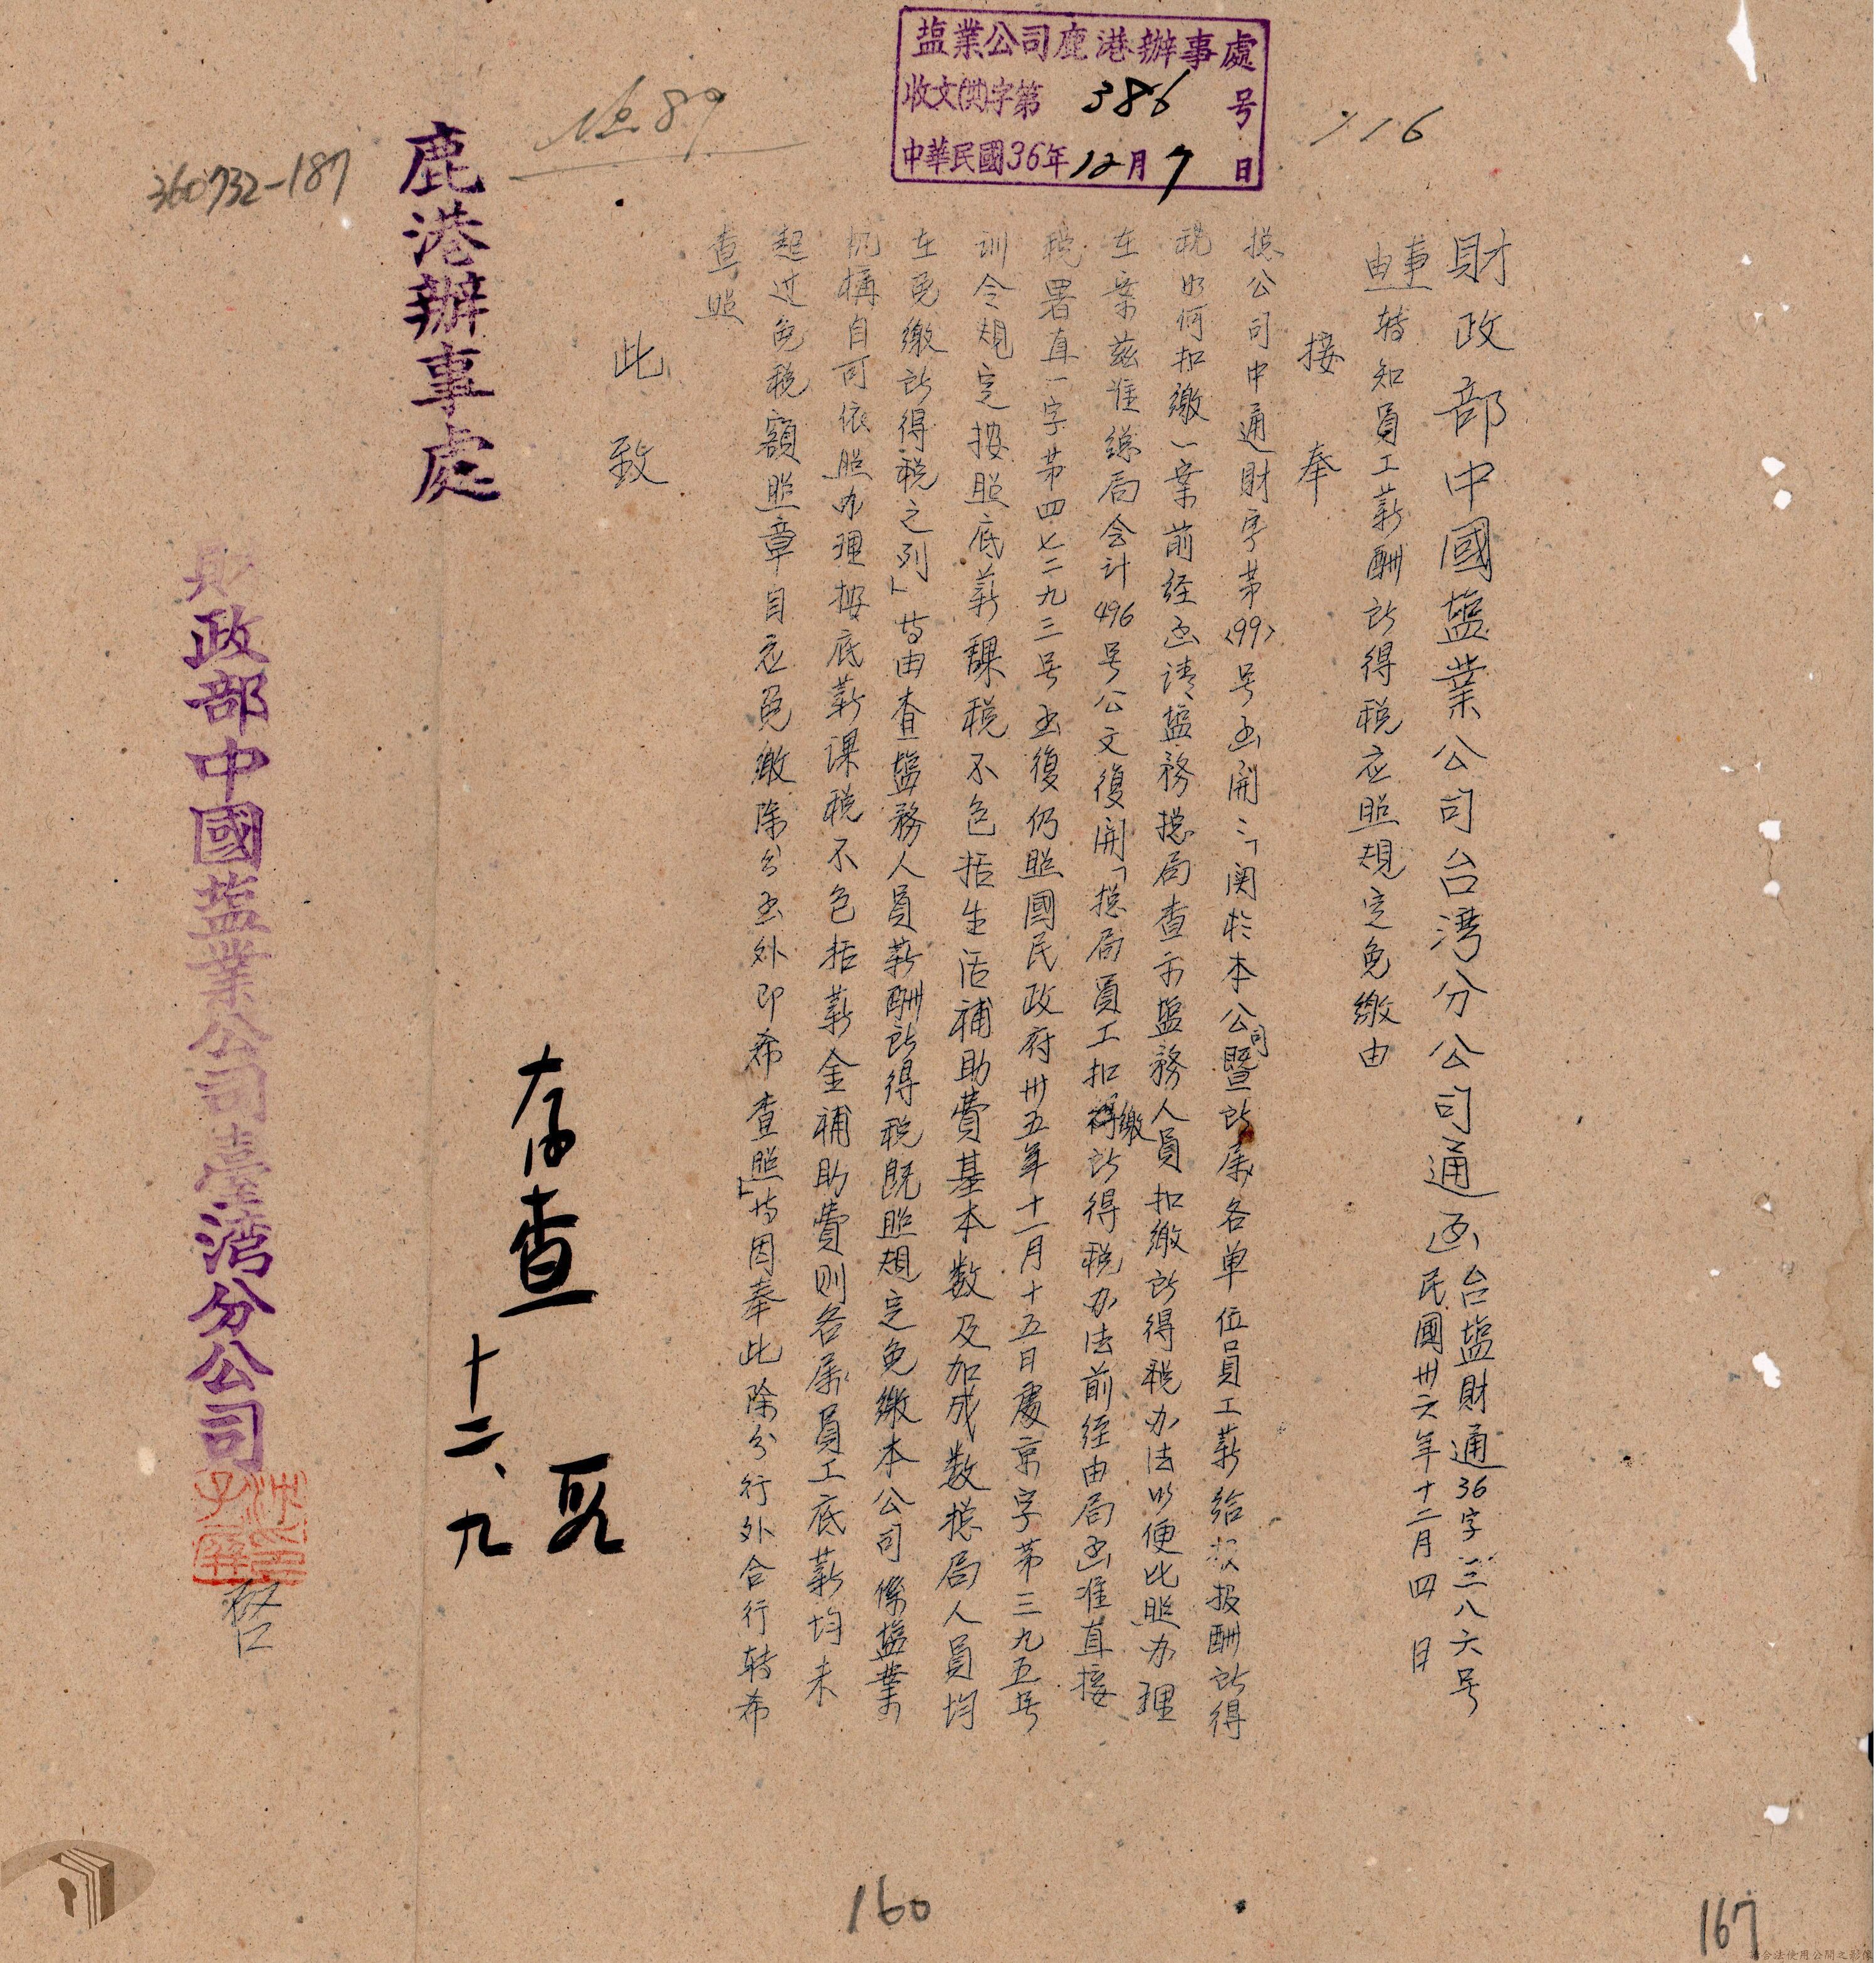 塩業公司鹿港辦事處
收文(塩)字第386号
中華民國36年12月7日
716
No 89
360732-187
財政部中國塩業公司台湾分公司通函
台塩財通36字三八六号
民國卅六年十二月四日
事由 轉知員工薪酬所得税应照規定免繳由
接奉
捴公司中通財字第<99>号函開:「関於本公司暨所属各单位員工薪給报酬所得
税如何扣繳一案前经函请塩務捴局查示塩務人員扣繳所得税办法以便比照办理
在案兹准總局会计496号公文復開「捴局員工扣繳所得税办法前经由局函准直接
税署直一字第四七二九三号函復仍照國民政府卅五年十一月十五日處京字第三九五号
训令規定按照底薪課税不包括生活補助費基本数及加成数捴局人員均
在免繳所得税之列」等由查塩務人員薪酬所得税既照規定免繳本公司係塩業
机構自可依照办理按底薪课税不包括薪金補助費则各属員工底薪均未
超过免税額照章自应免繳除分函外即希查照」等因奉此除分行外合行转希
查照
此致
鹿港辦事處
財政部中國塩業公司臺湾分公司
啓
存查
十二、九
160
167